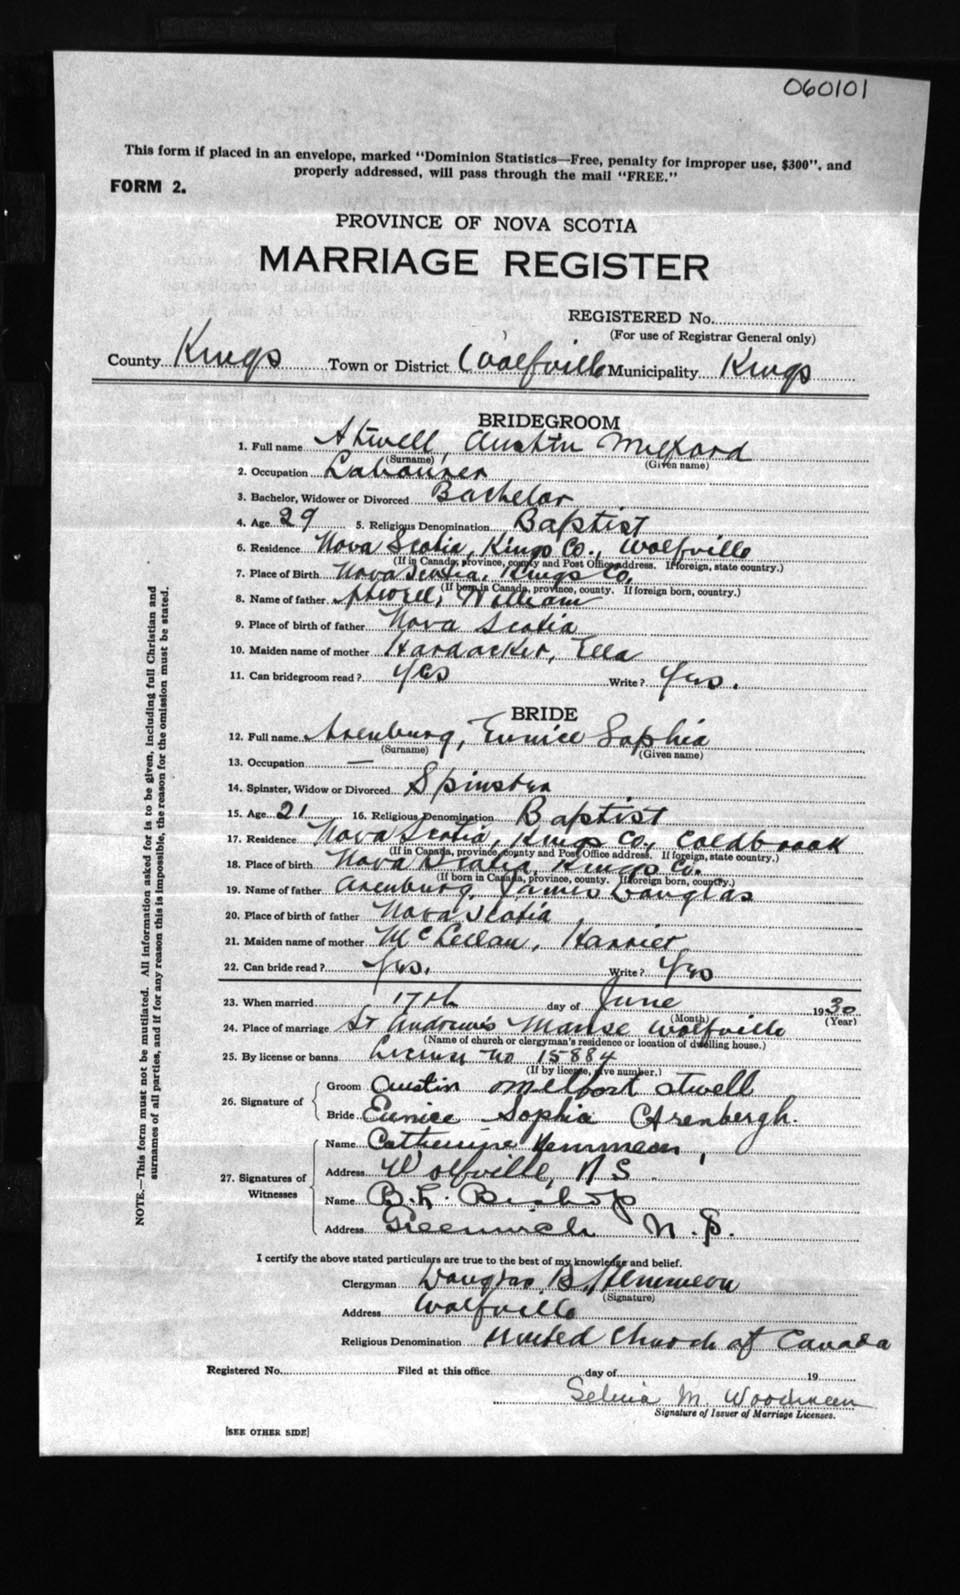 060101
This form if placed in an envelope, marked "Dominion Statistics—Free, penalty for improper use, $300", and
properly addressed, will pass through the mail "FREE."
FORM 2.
PROVINCE OF NOVA SCOTIA
MARRIAGE REGISTER
REGISTERED No.
(For use of Registrar General only)
County Kings Town or District Wolfville Municipality Kings
BRIDEGROOM
1. Full name Atwell, Austin Milford
(Surname) (Given name)
2. Occupation Labourer
3. Bachelor, Widower or Divorced Bachelor
4. Age 29 5. Religious Denomination Baptist
6. Residence Nova Scotia, Kings Co., Wolfville
(If in Canada, province, county and Post Office address. If foreign, state country.)
7. Place of Birth Nova Scotia, Kings Co,
(If born in Canada, province, county. If foreign born, country.)
8. Name of father Atwell, William
9. Place of birth of father Nova Scotia
10. Maiden name of mother Hardacker, Ella
11. Can bridegroom read? Yes Write? Yes.
BRIDE
12. Full name Arenburg, Eunice Sophia
(Surname) (Given name)
13. Occupation —
14. Spinster, Widow or Divorced Spinster
15. Age 21 16. Religious Denomination Baptist
17. Residence Nova Scotia, Kings Co, Coldbrook
(If in Canada, province, county and Post Office address. If foreign, state country.)
18. Place of birth Nova Scotia, Kings Co.
(If born in Canada, province, county. If foreign born, country.)
19. Name of father Arenburg, James Douglas
20. Place of birth of father Nova Scotia
21. Maiden name of mother McLellan, Harriet
22. Can bride read? Yes. Write? Yes
23. When married 17th day of June 1930
(Month) (Year)
24. Place of marriage St Andrew's Manse Wolfville
(Name of church or clergyman's residence or location of dwelling house.)
25. By license or banns License no 15884
(If by license, give number.)
26. Signature of Groom Austin Melfort Atwell
Bride Eunice Sophia Arenbergh.
27. Signatures of Witnesses
Name Catherine Hemmeon,
Address Wolfville, N S.
Name B. L. Bishop
Address Greenwich N. S.
I certify the above stated particulars are true to the best of my knowledge and belief.
Clergyman Douglas B. Hemmeon
(Signature)
Address Wolfville
Religious Denomination United Church of Canada
Registered No. Filed at this office day of 19
Selina M. Woodman
Signature of Issuer of Marriage Licenses.
[SEE OTHER SIDE]
NOTE.—This form must not be mutilated. All information asked for is to be given, including full Christian and
surnames of all parties, and if for any reason this is impossible, the reason for the omission must be stated.